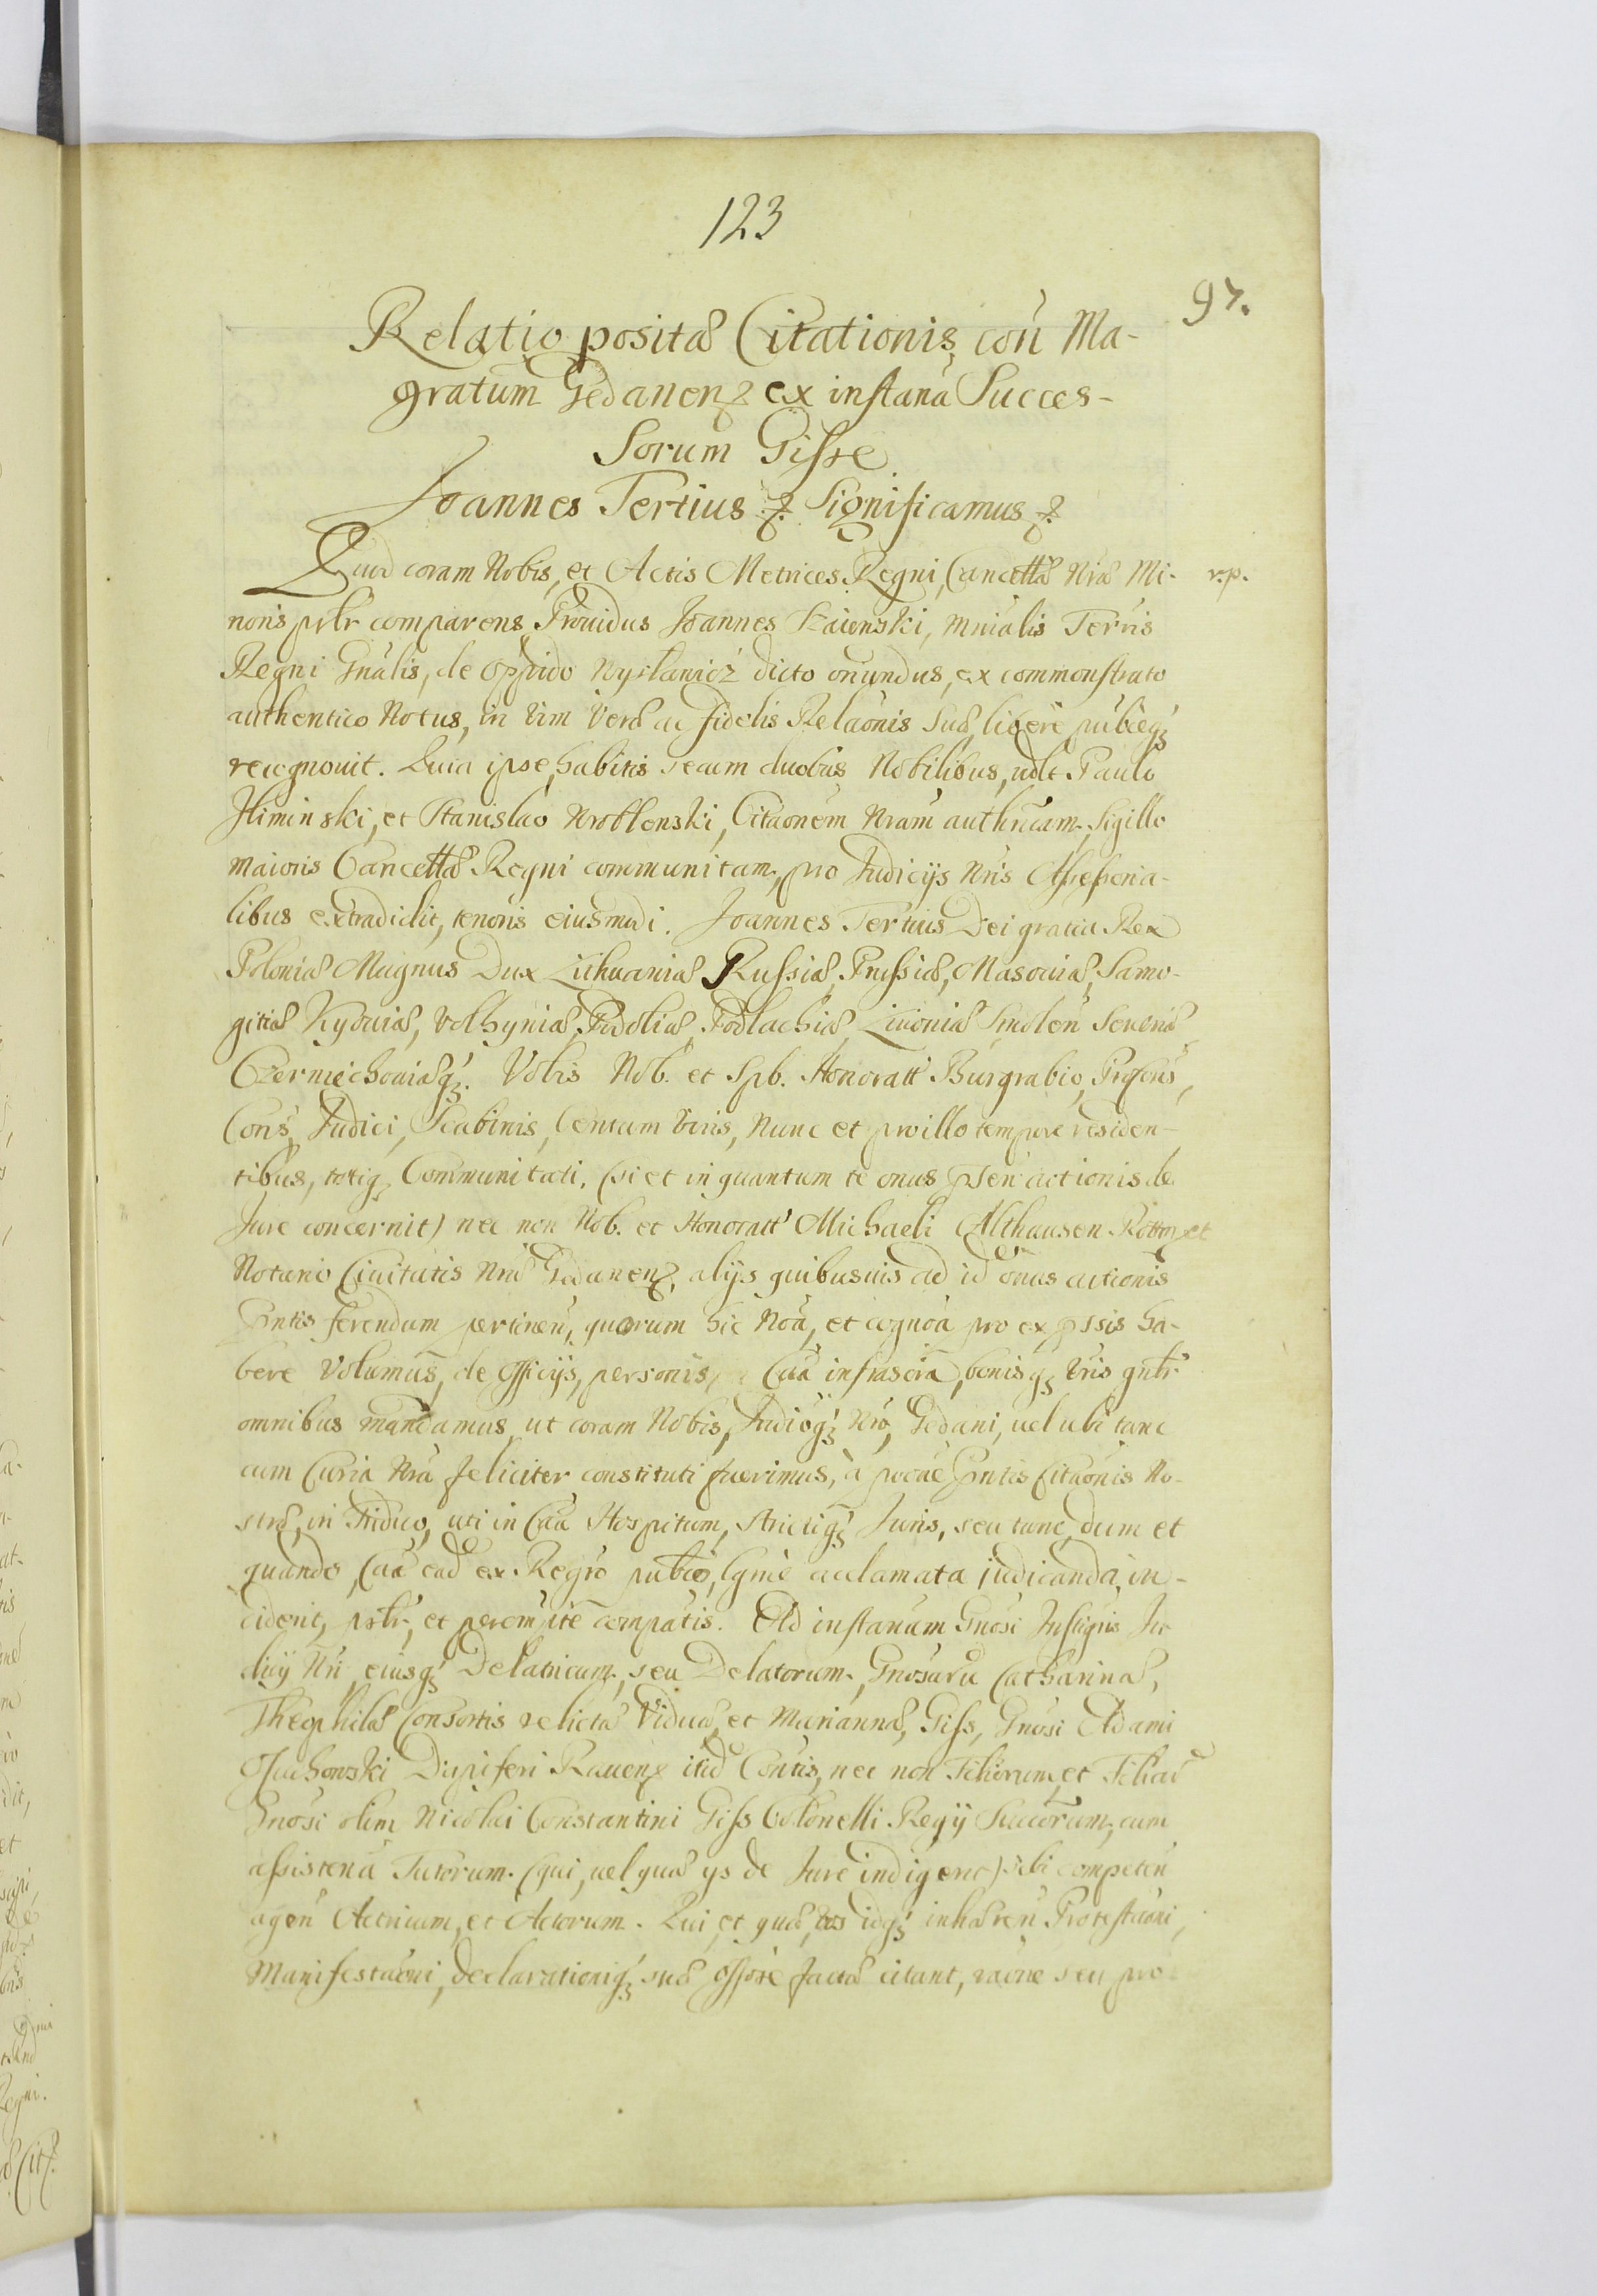 123
97.
Relatio positæ Citationis con̄ Ma-
gratum Gedanenꝫ ex instan̄a Succes-
sorum Gisse
Joannes Tertius ꝛ. Significamus ꝛ.
Quia coram Nobis, et Actis Metrices Regni, Cancellæ Nræ Mi- r.p.
noris prlr comparens Providus Joannes Szaienski, Mnialis Terris
Regni Gn̄alis, de oppido Wysłanicz dicto oriundus, ex commonstrato
authentico Notus, in vim veræ ac fidelis Rela͠onis suæ, liberè publ̄eqꝫ
recognouit. Quia ipse, habitis secum duobus Nobilibus, udlt Paulo
Iliminski, et Stanislao Wroblenski, Cita͠onem Nram authn̄cam, Sigillo
maioris Cancellæ Regni communitam, pro Judicijs Nris Assessoria-
libus extradidit, tenoris eiusmodi. Joannes Tertius Dei gratia Rex
Poloniæ Magnus Dux Lithuaniæ Russiæ, Prussiæ, Masouiæ, Samo-
gitiæ Kyouiæ, Volhyniæ, Podoliæ, Podlachiæ, Liuoniæ Smolen̄ Seueriæ
Czerniechouiæqꝫ. Vobis Nob. et Spb. Honoratt Burgrabio, Præcons,
Cons, Judici, Scabinis, Centum viris, Nunc et pro illo tempore residen-
tibus, totiqꝫ Communitati, (si et in quantum te onus psen̄ actionis de
Jure concernit) nec non Nob. et Honoratt Michaeli Althausen et
Notario Ciuitatis Nræ Gedanenꝫ, alijs quibusuis ad id onus actionis
Pntis ferendum pertinen̄, quorum hic No͠a, et cogno͠a pro expssis ha-
bere Volumus, de Officijs, personis, Ca͠a infrascr̄a, bonisqꝫ vris gn̄lr
omnibus mandamus, ut coram Nobis, Judi͠oqꝫ Nro, Gedani, uel ubi tunc
cum Curia Nr̄a feliciter constituti fuerimus, à po͠ne Pntis Cita͠onis No-
stræ, in Triduo, uti in Ca͠a Hospitum, strictiqꝫ Juris, seu tunc, dum et
quando, Ca͠a ead ex Regro publ̄co, lgmè acclamata judicanda, in-
ciderit, prlr, et perempte͠ compa͠tis. Ad instan̄um Gnosi Instig̃ris Ju
dicij Nri, eiusqꝫ Delatricum, seu Delatorum, Gnosaru Catharinæ,
Theophilæ Consortis relictæ Viduæ, et Mariannæ, Giss, Gnosi Adami
Dapiferi Rauenꝫ itid Con̄tis, nec non Filiorum, et Filiar̄
Gnosi olim Nicolai Constantini Giss Colonelli Regij Succorum, cum
assisten̄a Tutorum. (qui, uel quæ ijs de Jure indigent) sibi competen̄
agen̄ Actricum, et Actorum. Qui, et quæ, idqꝫ inhæren̄ Protesta͠oni,
Manifesta͠oni, Declarationiqꝫ suæ Offore factæ citant, ra͠one seu pro